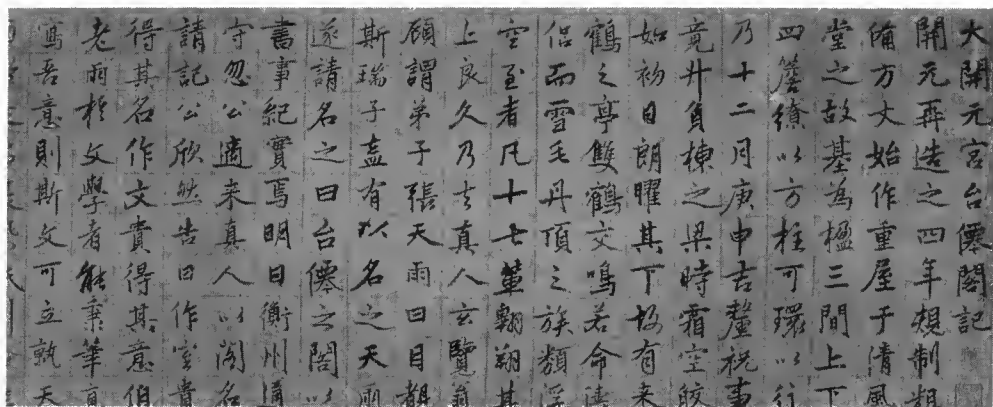 大開元宮台僊閣記
開元再造之四年規制粗
備方丈始作重屋于清風
堂之故基為楹三間上下
四簷繚以方柱可環以行
乃十二月庚申吉釐祝事
竟升負棟之梁時霜空皎
如初日朗曜其下有来
鶴之亭雙鶴交鳴若命儔
侣而雪毛丹頂之族類浮
空至者凡十七輩翱翔其
上良久乃去真人玄覽翁
顧謂弟子張天雨曰目覩
斯瑞子盍有以名之天雨
遂請名之曰台僊之閣以
書事紀實焉明日衡州通
守忽公適来真人以閣名
請記公欣然告曰作室貴
得其名作文貴得其意伯
老雨於文學者能秉筆
寫吾意則斯文可立孰天